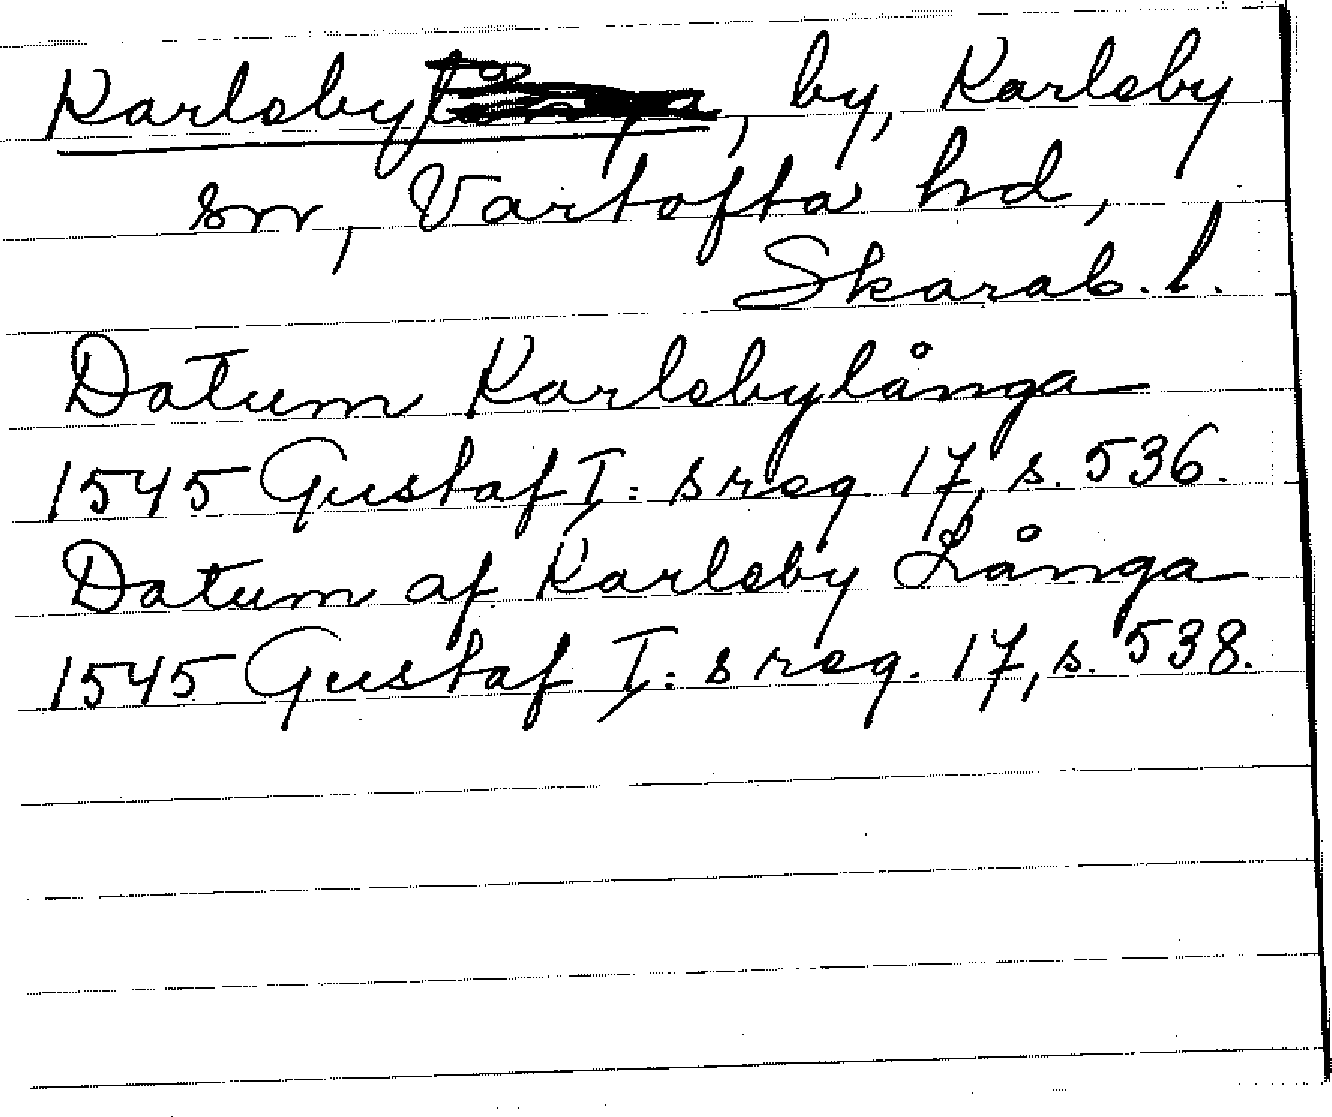 Karleby, by, Karleby
sn, Vartofta hd,
Skarab. l.
Datum Karlebylånga
1545 Gustaf I: s reg 17, s. 536.
Datum af Karleby Långa
1545 Gustaf I: s reg. 17, s. 538.